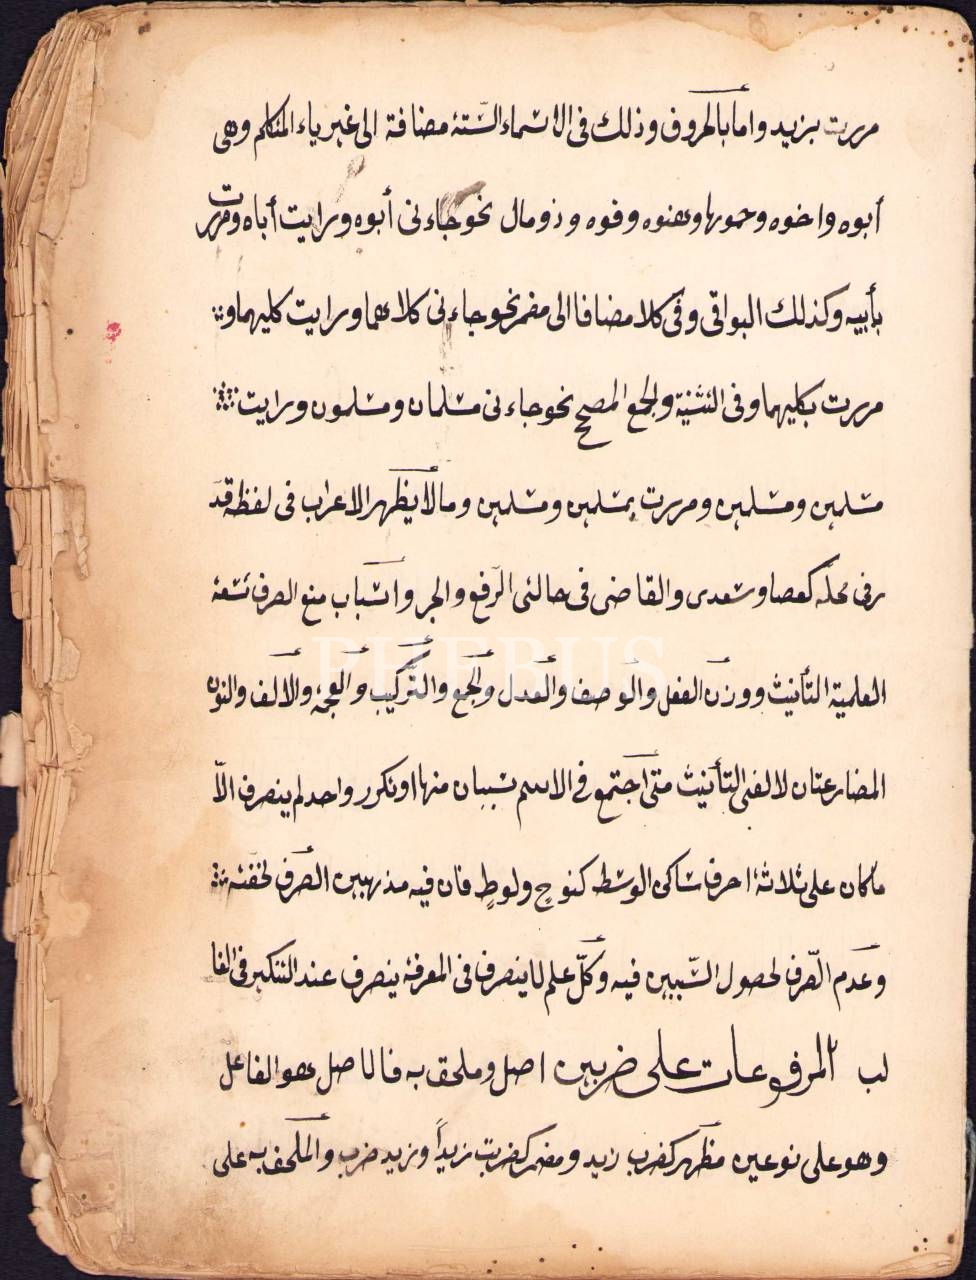 مررت بزيد واما بالحروف وذلك فى الاسماء الستة مضافة الى غير ياء المتكلم وهى
أبوه واخوه وحموها وهنوه وفوه وذو مال نحو جاءنى أبوه ورايت أباه ومررت
بأبيه وكذلك البواقى وفى كلا مضافا الى مضمر نحو جاءنى كلاهما ورايت كليهما و
مررت بكليهما وفى التثنية والجمع المصحح نحو جاءنى مسلمان ومسلمون ورايت
مسلمين ومسلمين ومررت بمسلمين ومسلمين وما لا يظهر الاعراب فى لفظه قد
رفى محله كعصا وسعدى والقاضى فى حالتى الرّفع والجر واسباب منع الصرف تسعة
العلمية التأنيث ووزن الفعل والوصف والعدل والجمع والتّركيب والعجمة والالف والنون
المضارعتان لالفى التأنيث متى اجتمع فى الاسم سببان منها او تكرر واحد لم ينصرف الاّ
ماكان على ثلاثة احرف ساكن الوسط كنوحٍ ولوطٍ فان فيه مذهبين الصّرف لخفته
وعدم الصّرف لحصول السّببين فيه وكلّ علم لا ينصرف فى المعرفة ينصرف عند التنكير فى الغا
لب المرفوعات على ضربين اصل وملحق به فالاصل هو الفاعل
وهو على نوعين مظهر كضرب زيد ومضمر كضربت زيداً وزيد ضرب والملحق به على
PHEBUS